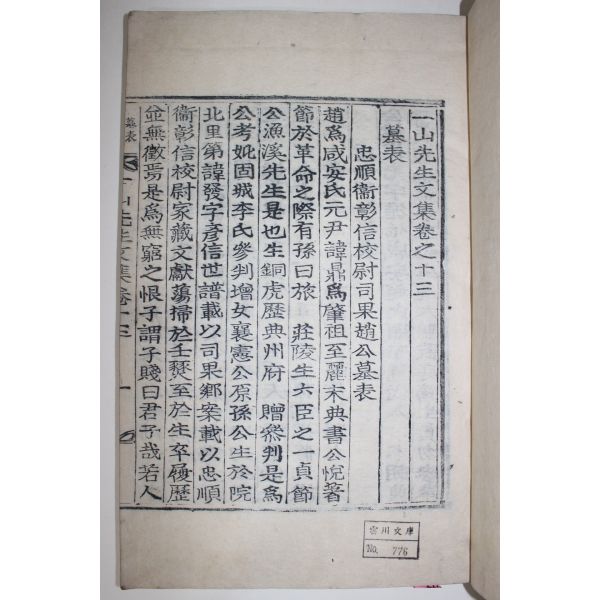 一山先生文集卷之十三
墓表
忠順衛彰信校尉司果趙公墓表
趙爲咸安氏元尹諱鼎爲肇祖至麗末典書公悅著
節於革命之際有孫曰旅 莊陵生六臣之一貞節
公漁溪先生是也生銅虎歷典州府 贈參判是爲
公考妣固城李氏參判增女襄憲公原孫公生於院
北里第諱發字彥信世譜載以司果鄕案載以忠順
衛彰信校尉家藏文獻蕩掃於壬燹至於生卒履歷
並無徵焉是爲無窮之恨子謂子賤曰君子哉若人
墓表
一山先生文集卷十三
一
雲川文庫
No. 776